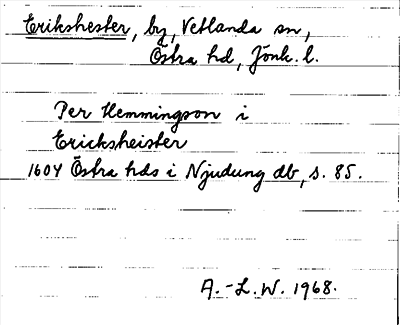 Erikshester, by, Vetlanda sn,
Östra hd, Jönk. l.
Per Hemmingson i
Ericksheister
1604 Östra hds i Njudung db, s. 85.
A.-L.W. 1968.